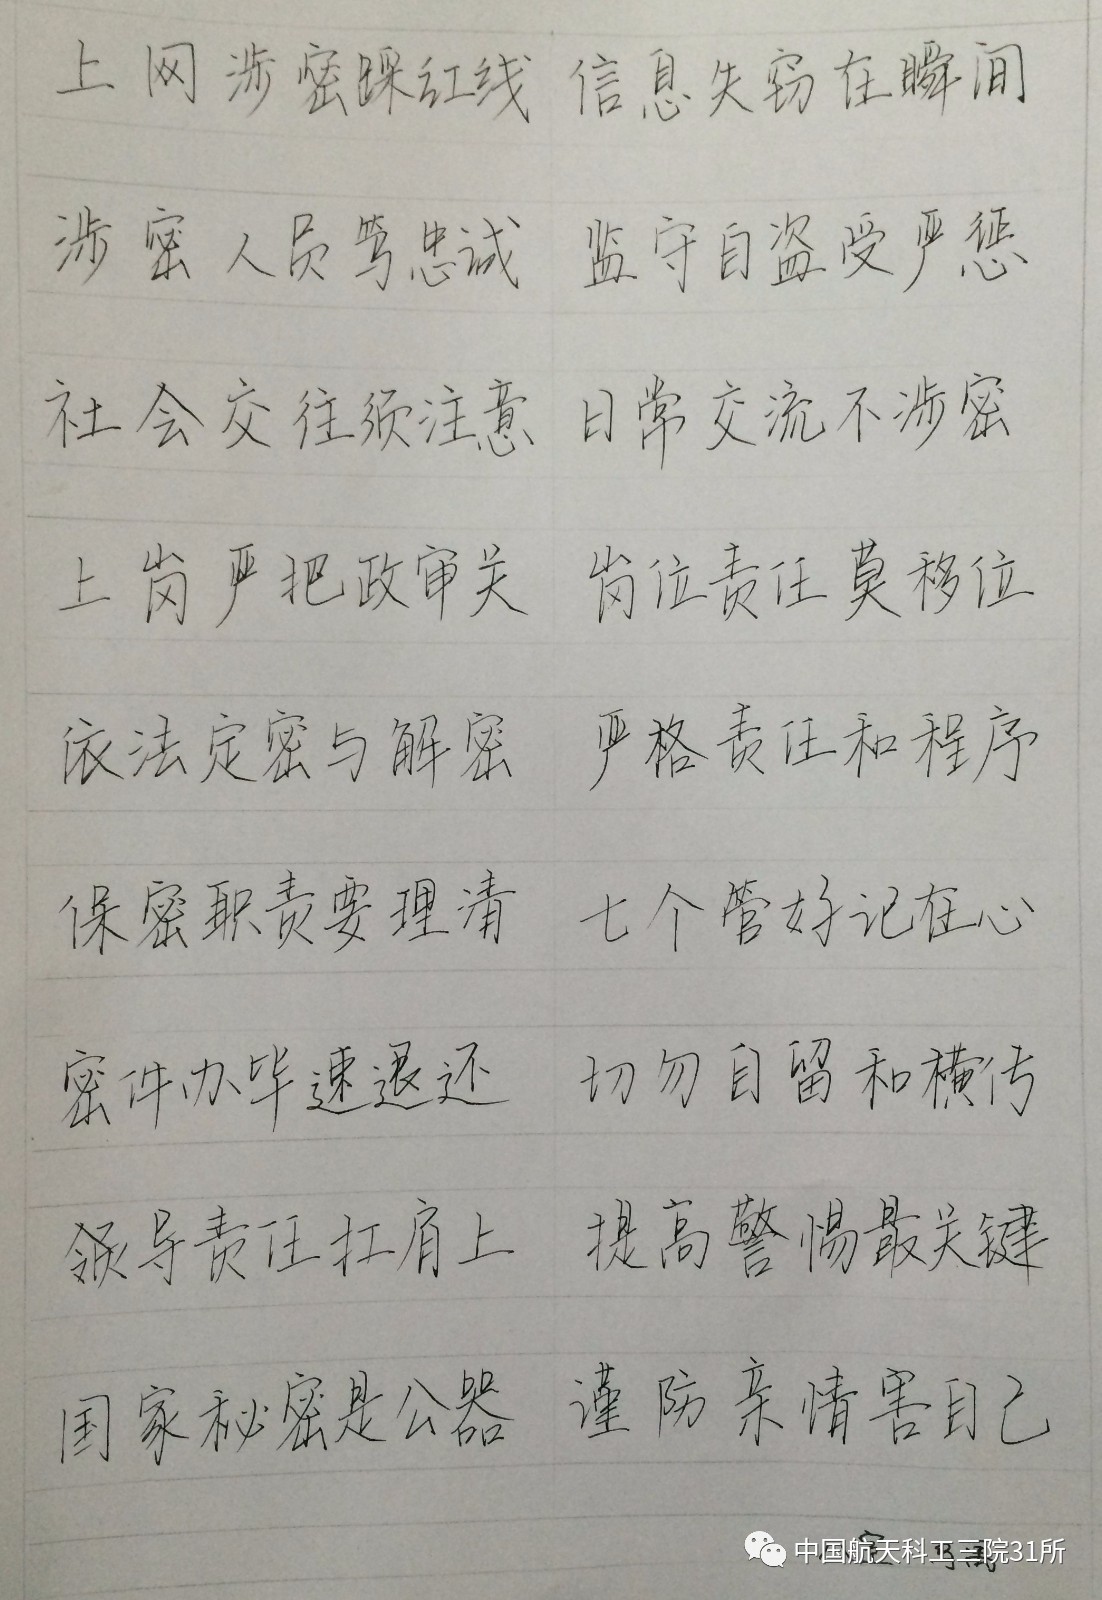 上网涉密踩红线 信息失窃在瞬间
涉密人员笃忠诚 监守自盗受严惩
社会交往须注意 日常交流不涉密
上岗严把政审关 岗位责任莫移位
依法定密与解密 严格责任和程序
保密职责要理清 七个管好记在心
密件办毕速退还 切勿自留和横传
领导责任扛肩上 提高警惕最关键
国家秘密是公器 谨防亲情害自己
中国航天科工三院31所